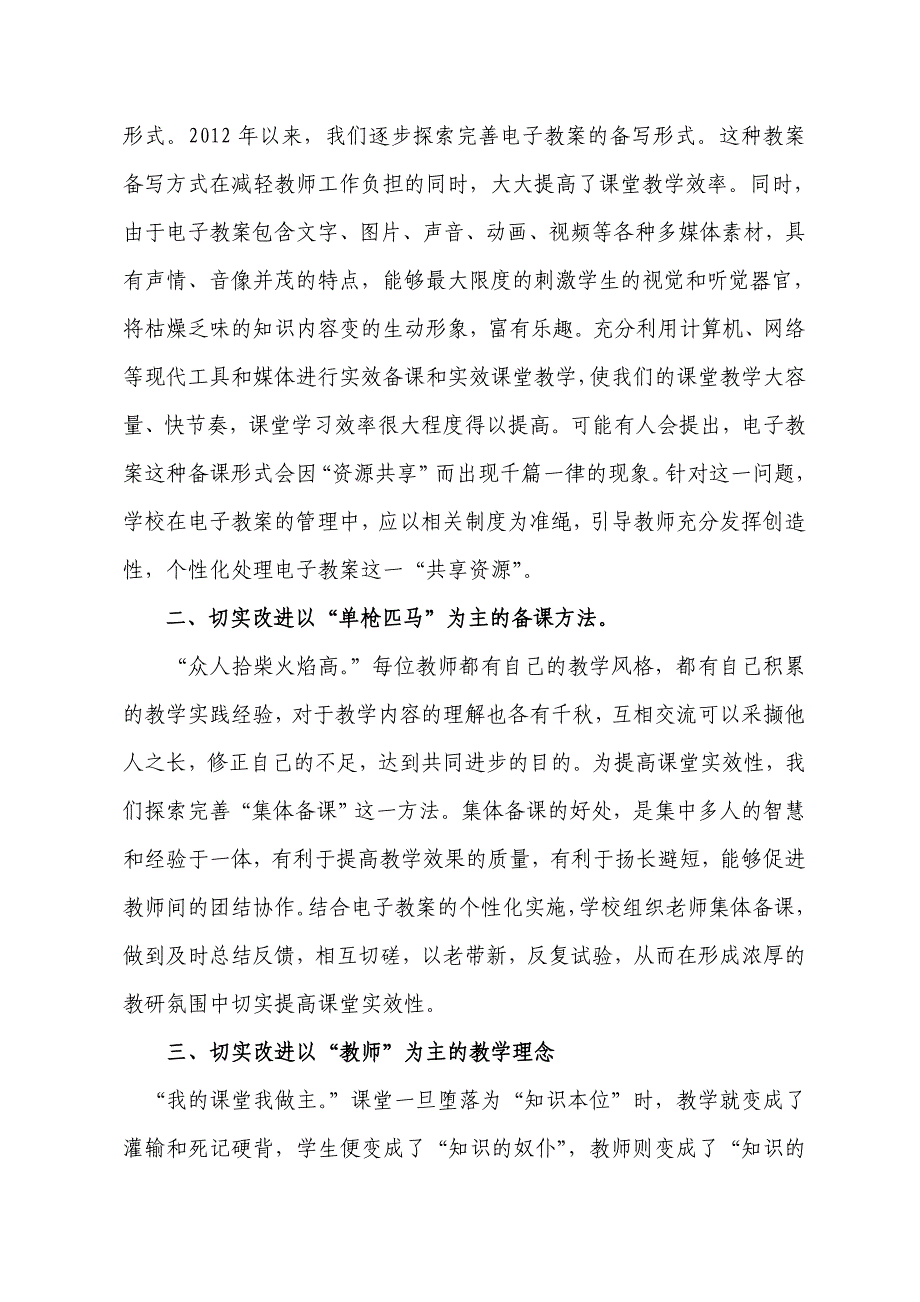 形式。2012 年以来，我们逐步探索完善电子教案的备写形式。这种教案
备写方式在减轻教师工作负担的同时，大大提高了课堂教学效率。同时，
由于电子教案包含文字、图片、声音、动画、视频等各种多媒体素材，具
有声情、音像并茂的特点，能够最大限度的刺激学生的视觉和听觉器官，
将枯燥乏味的知识内容变的生动形象，富有乐趣。充分利用计算机、网络
等现代工具和媒体进行实效备课和实效课堂教学，使我们的课堂教学大容
量、快节奏，课堂学习效率很大程度得以提高。可能有人会提出，电子教
案这种备课形式会因“资源共享”而出现千篇一律的现象。针对这一问题，
学校在电子教案的管理中，应以相关制度为准绳，引导教师充分发挥创造
性，个性化处理电子教案这一“共享资源”。
二、切实改进以“单枪匹马”为主的备课方法。
“众人拾柴火焰高。”每位教师都有自己的教学风格，都有自己积累
的教学实践经验，对于教学内容的理解也各有千秋，互相交流可以采撷他
人之长，修正自己的不足，达到共同进步的目的。为提高课堂实效性，我
们探索完善“集体备课”这一方法。集体备课的好处，是集中多人的智慧
和经验于一体，有利于提高教学效果的质量，有利于扬长避短，能够促进
教师间的团结协作。结合电子教案的个性化实施，学校组织老师集体备课，
做到及时总结反馈，相互切磋，以老带新，反复试验，从而在形成浓厚的
教研氛围中切实提高课堂实效性。
三、切实改进以“教师”为主的教学理念
“我的课堂我做主。”课堂一旦堕落为“知识本位”时，教学就变成了
灌输和死记硬背，学生便变成了“知识的奴仆”，教师则变成了“知识的